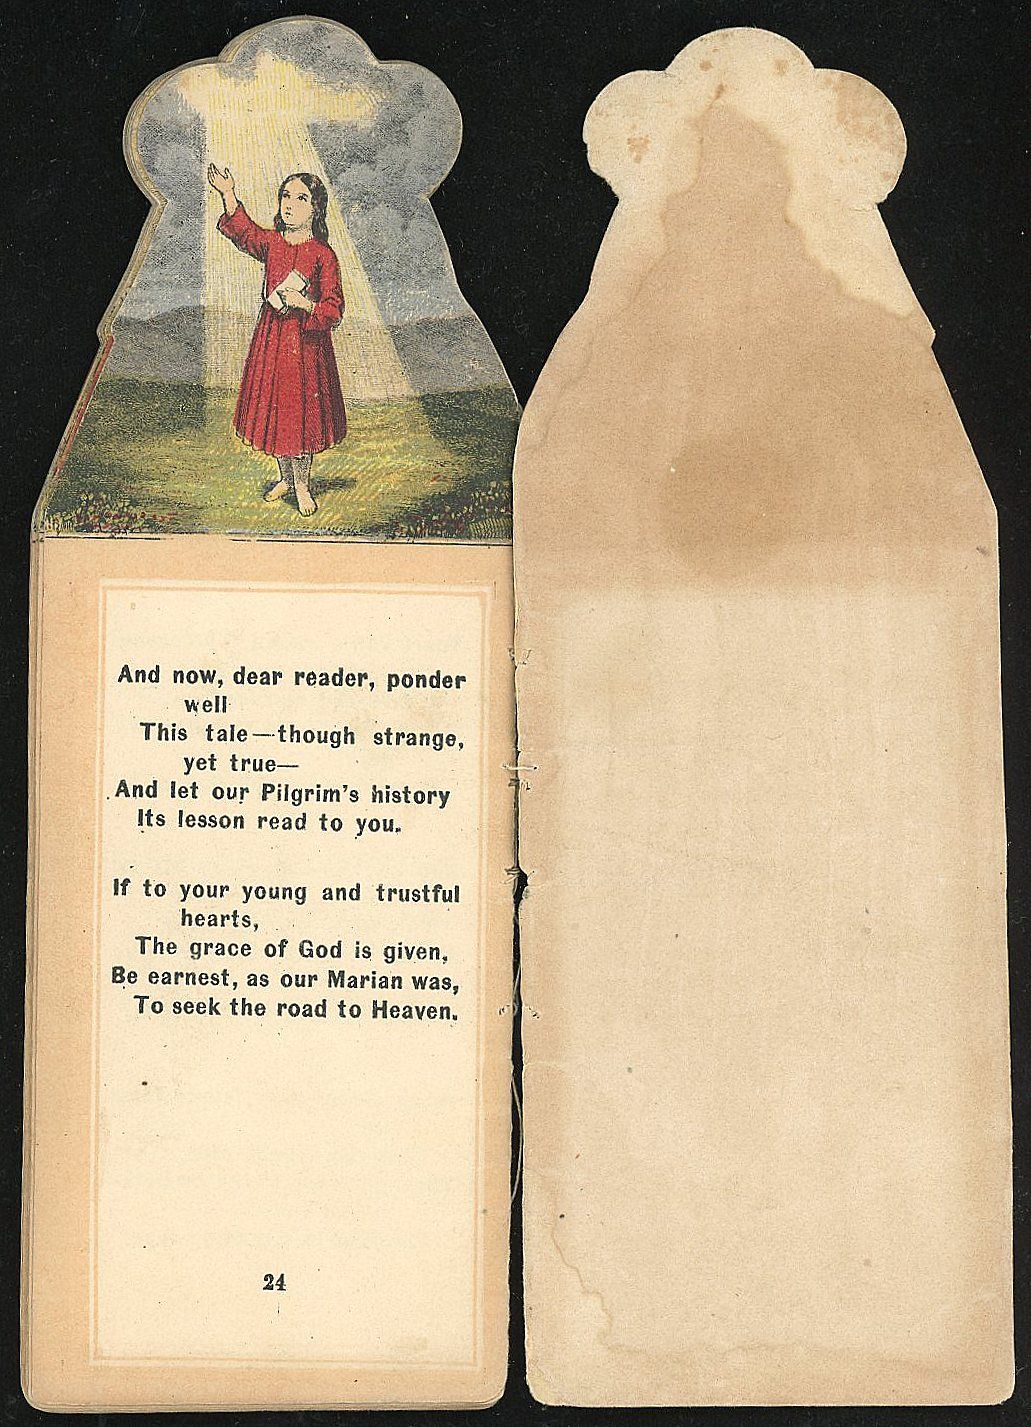 And now, dear reader, ponder
well
This tale—though strange,
yet true—
And let our Pilgrim's history
Its lesson read to you.
If to your young and trustful
hearts,
The grace of God is given,
Be earnest, as our Marian was,
To seek the road to Heaven.
24